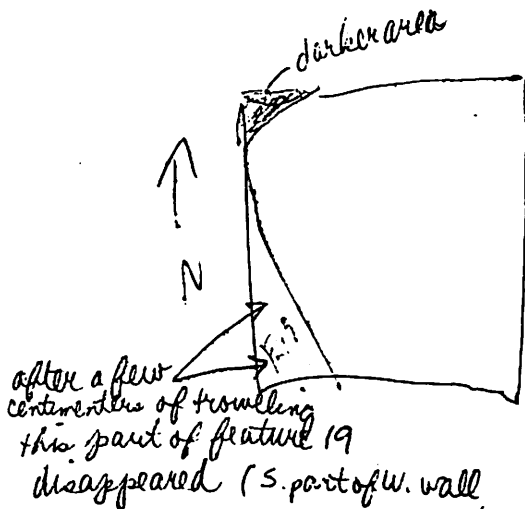 darker area
N
F.19
after a few
centimenters of troweling
this part of feature 19
disappeared (S. part of W. wall